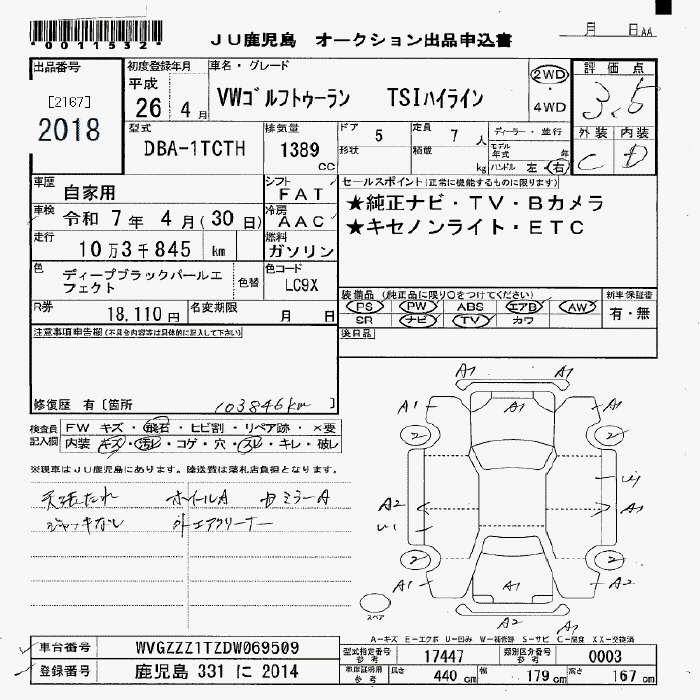 *0011532*
JU鹿児島 オークション出品申込書
月 日 AA
出品番号
[2167]
2018
初度登録年月
平成
26 4 月
車名・グレード
VWゴルフトゥーラン TSIハイライン
2WD
・
4WD
評価点
3.5
外装 内装
C D
型式
DBA-1TCTH
排気量
1389 cc
ドア 5
形状
定員 7 人
積載 kg
ディーラー・並行
モデル年式 年
ハンドル 左・右
車歴 自家用
シフト FAT
車検 令和 7年 4月(30日)
冷房 AAC
走行 10万3千845 km
燃料 ガソリン
色 ディープブラックパールエフェクト
色替
色コード LC9X
R券 18,110円
名変期限 月 日
セールスポイント(正常に機能するものに限ります)
★純正ナビ・TV・Bカメラ
★キセノンライト・ETC
装備品(純正品に限り○をつけてください)
PS PW ABS エアB AW
SR ナビ TV カワ
新車保証書
有・無
後日品
注意事項申告欄(不具合内容等は具体的に記入して下さい)
修復歴 有〔箇所 103846km 〕
検査員記入欄
FW キズ・飛石・ヒビ割・リペア跡・×要
内装 キズ・汚レ・コゲ・穴・スレ・キレ・破レ
※現車はJU鹿児島にあります。陸送費は落札店負担となります。
天張たれ ホイールA ミラーA
ジャッキなし 外エアクリーナー
A1 A1
A1 A1 A1
2 2
A2 A1
2 2
A1 A1 A2
A1
スペア
A-キズ E-エクボ U-凹み W-補修跡 S-サビ C-腐食 XX-交換済
車台番号 WVGZZZ1TZDW069509
登録番号 鹿児島 331 に 2014
型式指定番号 参考 17447
類別区分番号 参考 0003
車庫証明用 参考 長さ 440 cm 幅 179 cm 高さ 167 cm